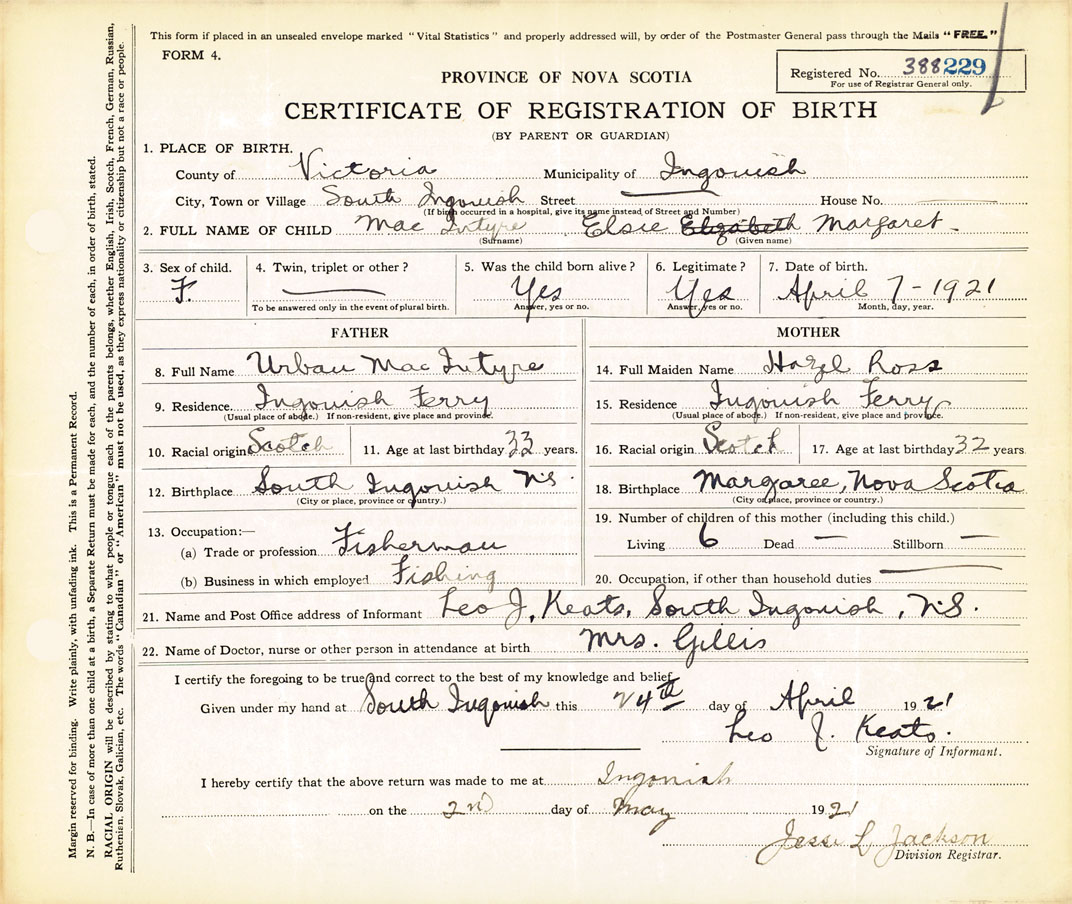 This form if placed in an unsealed envelope marked "Vital Statistics" and properly addressed will, by order of the Postmaster General pass through the Mails "FREE."
FORM 4.
PROVINCE OF NOVA SCOTIA
Registered No. 388229
For use of Registrar General only.
CERTIFICATE OF REGISTRATION OF BIRTH
(BY PARENT OR GUARDIAN)
1. PLACE OF BIRTH.
County of Victoria Municipality of Ingonish
City, Town or Village South Ingonish Street House No.
(If birth occurred in a hospital, give its name instead of Street and Number)
2. FULL NAME OF CHILD Mac Intyre Elsie Elizabeth Margaret
(Surname) (Given name)
3. Sex of child. 4. Twin, triplet or other? 5. Was the child born alive? 6. Legitimate? 7. Date of birth.
F. Yes Yes April 7-1921
To be answered only in the event of plural birth. Answer, yes or no. Answer, yes or no. Month, day, year.
FATHER
8. Full Name Urban Mac Intyre
9. Residence Ingonish Ferry
(Usual place of abode.) If non-resident, give place and province.
10. Racial origin Scotch 11. Age at last birthday 33 years.
12. Birthplace South Ingonish N.S.
(City or place, province or country.)
13. Occupation:—
(a) Trade or profession Fisherman
(b) Business in which employed Fishing
MOTHER
14. Full Maiden Name Hazel Ross
15. Residence Ingonish Ferry
(Usual place of abode.) If non-resident, give place and province.
16. Racial origin Scotch 17. Age at last birthday 32 years
18. Birthplace Margaree, Nova Scotia
(City or place, province or country.)
19. Number of children of this mother (including this child.)
Living 6 Dead — Stillborn —
20. Occupation, if other than household duties
21. Name and Post Office address of Informant Leo J. Keats, South Ingonish, N.S.
22. Name of Doctor, nurse or other person in attendance at birth Mrs. Gillis
I certify the foregoing to be true and correct to the best of my knowledge and belief.
Given under my hand at South Ingonish this 24th day of April 1921
Leo J. Keats.
Signature of Informant.
I hereby certify that the above return was made to me at Ingonish
on the 2nd day of May 1921
Jesse L Jackson
Division Registrar.
Margin reserved for binding. Write plainly, with unfading ink. This is a Permanent Record.
N. B.—In case of more than one child at a birth, a Separate Return must be made for each, and the number of each, in order of birth, stated.
RACIAL ORIGIN will be described by stating to what people or tongue each of the parents belongs, whether English, Irish, Scotch, French, German, Russian,
Ruthenian, Slovak, Galician, etc. The words "Canadian" or "American" must not be used, as they express nationality or citizenship but not a race or people.